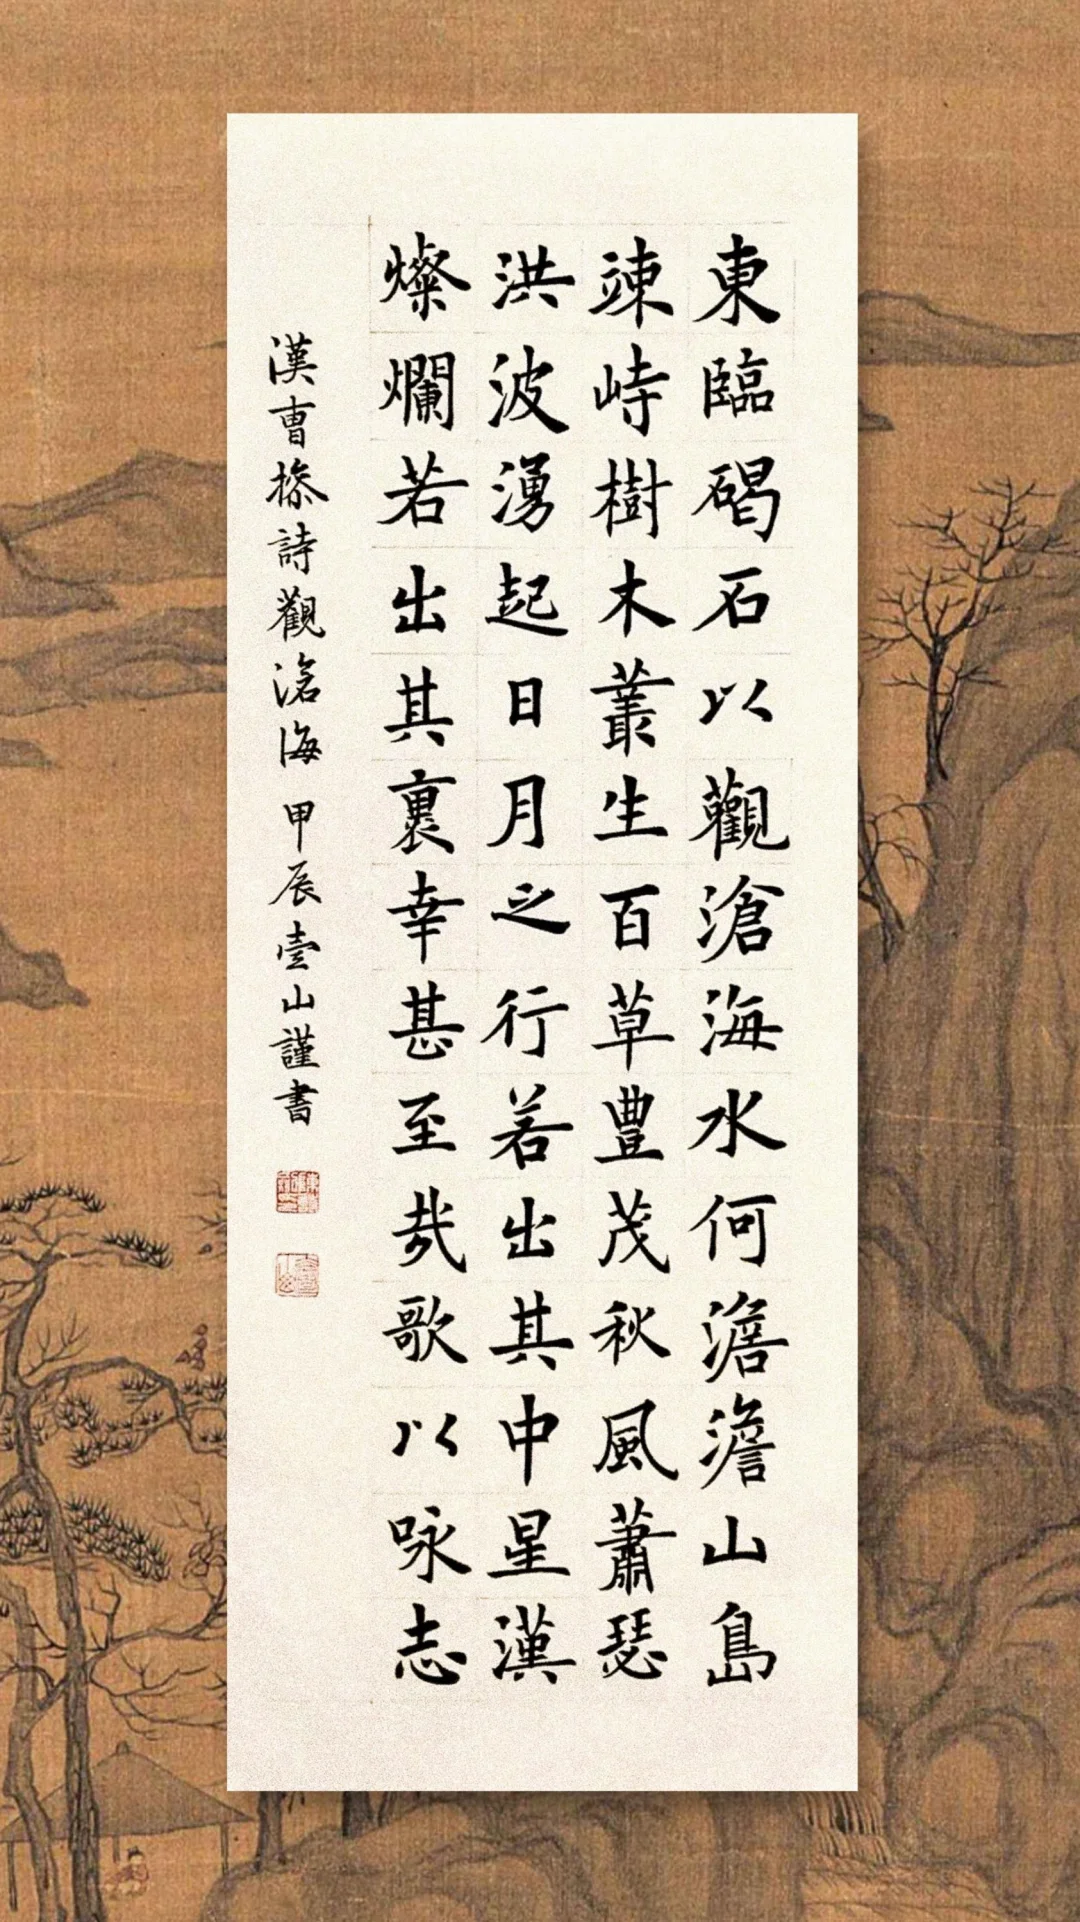 東臨碣石以觀滄海水何澹澹山島
竦峙樹木叢生百草豊茂秋風蕭瑟
洪波湧起日月之行若出其中星漢
燦爛若出其裏幸甚至哉歌以咏志
漢曹操詩觀滄海甲辰壹山謹書